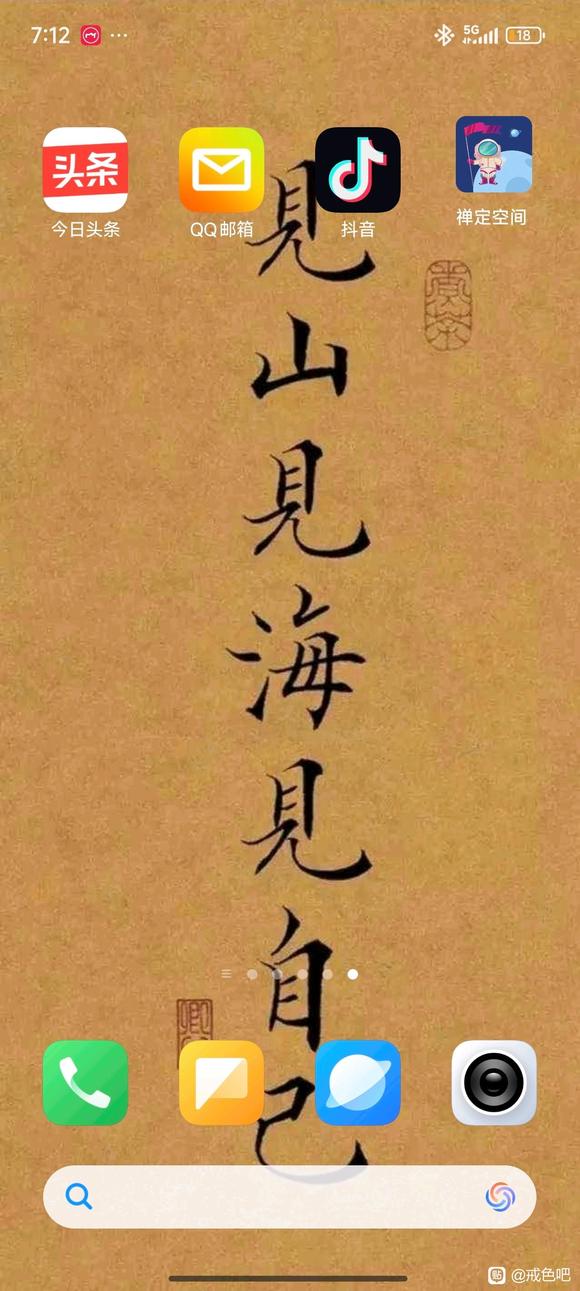 7:12
5G
18
头条
今日头条
QQ邮箱
抖音
禅定空间
見山見海見自己
貼 @戒色吧